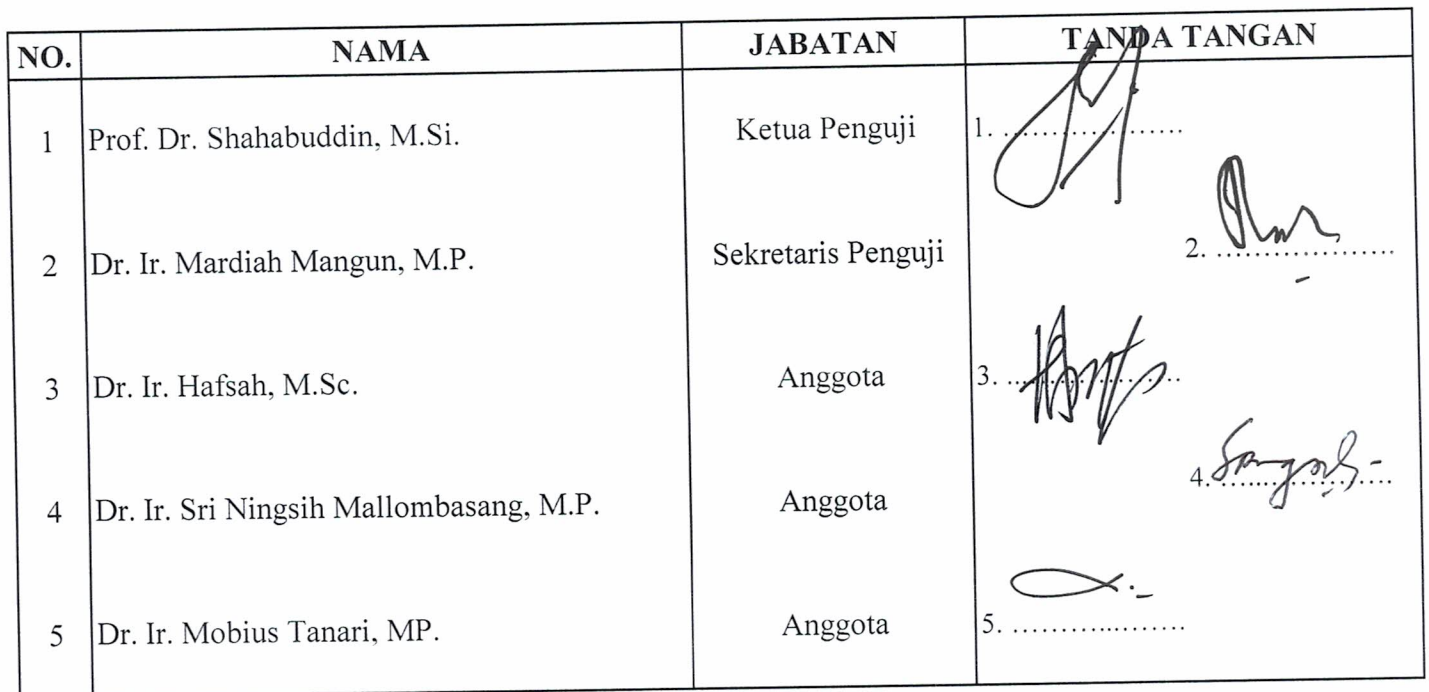 NO. NAMA JABATAN TANDA TANGAN
1 Prof. Dr. Shahabuddin, M.Si. Ketua Penguji 1. ....................
2 Dr. Ir. Mardiah Mangun, M.P. Sekretaris Penguji 2. ....................
3 Dr. Ir. Hafsah, M.Sc. Anggota 3. ....................
4 Dr. Ir. Sri Ningsih Mallombasang, M.P. Anggota 4. ....................
5 Dr. Ir. Mobius Tanari, MP. Anggota 5. ....................